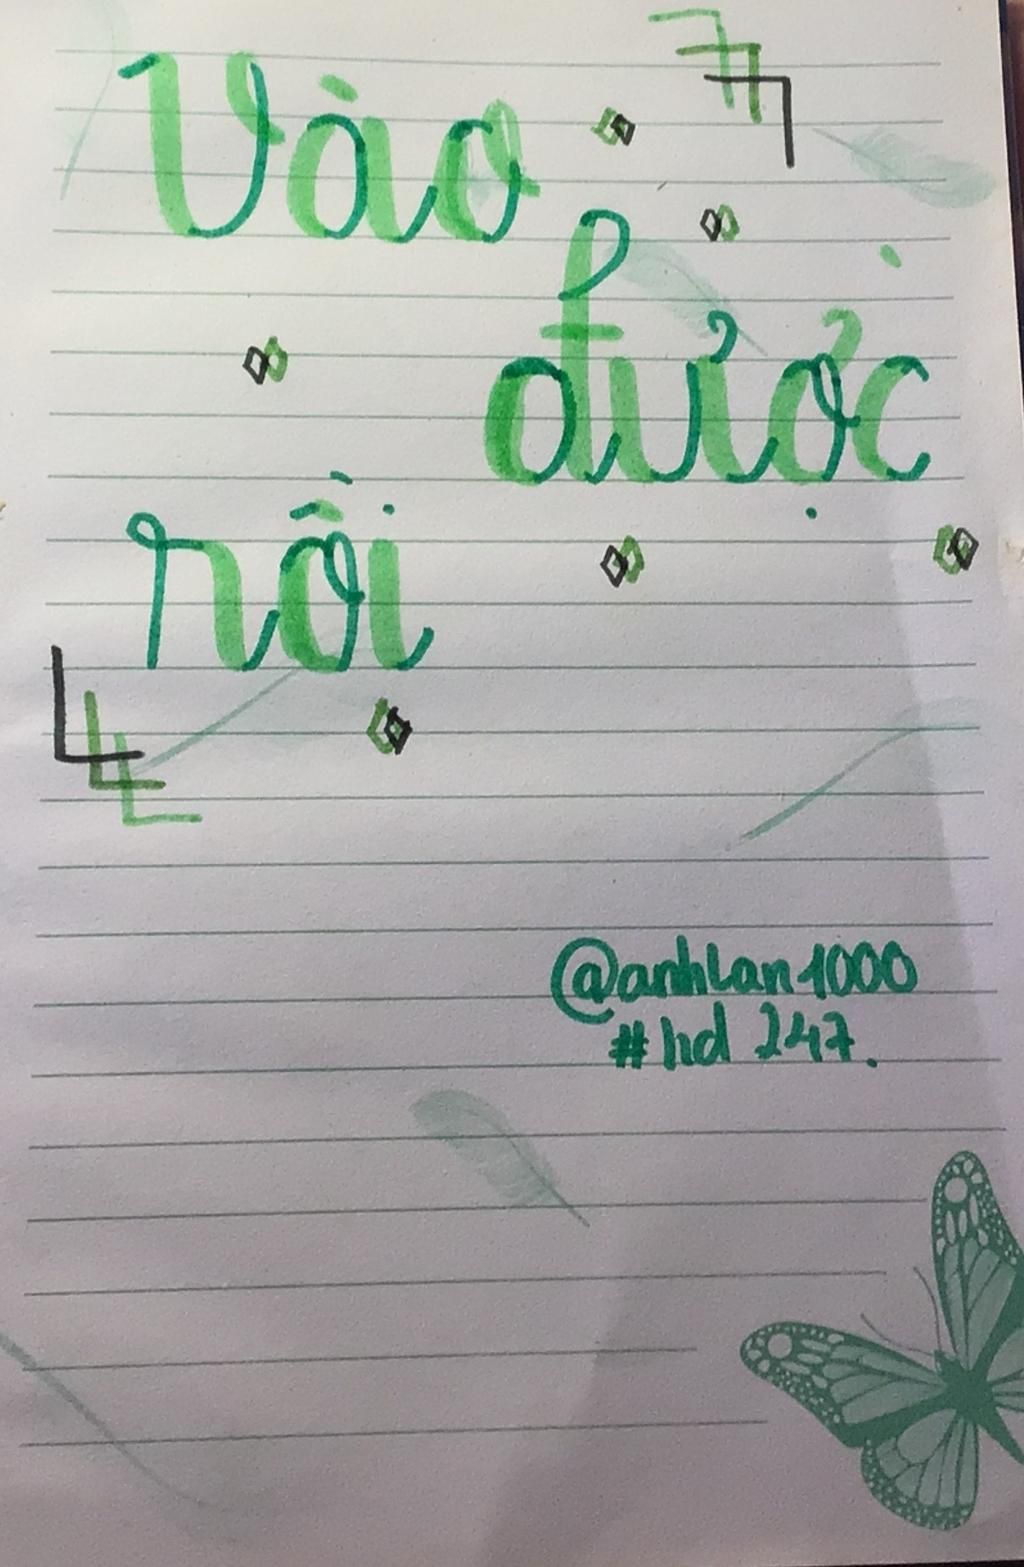 Vào
được
rồi
@anhlan1000
#hd 247.